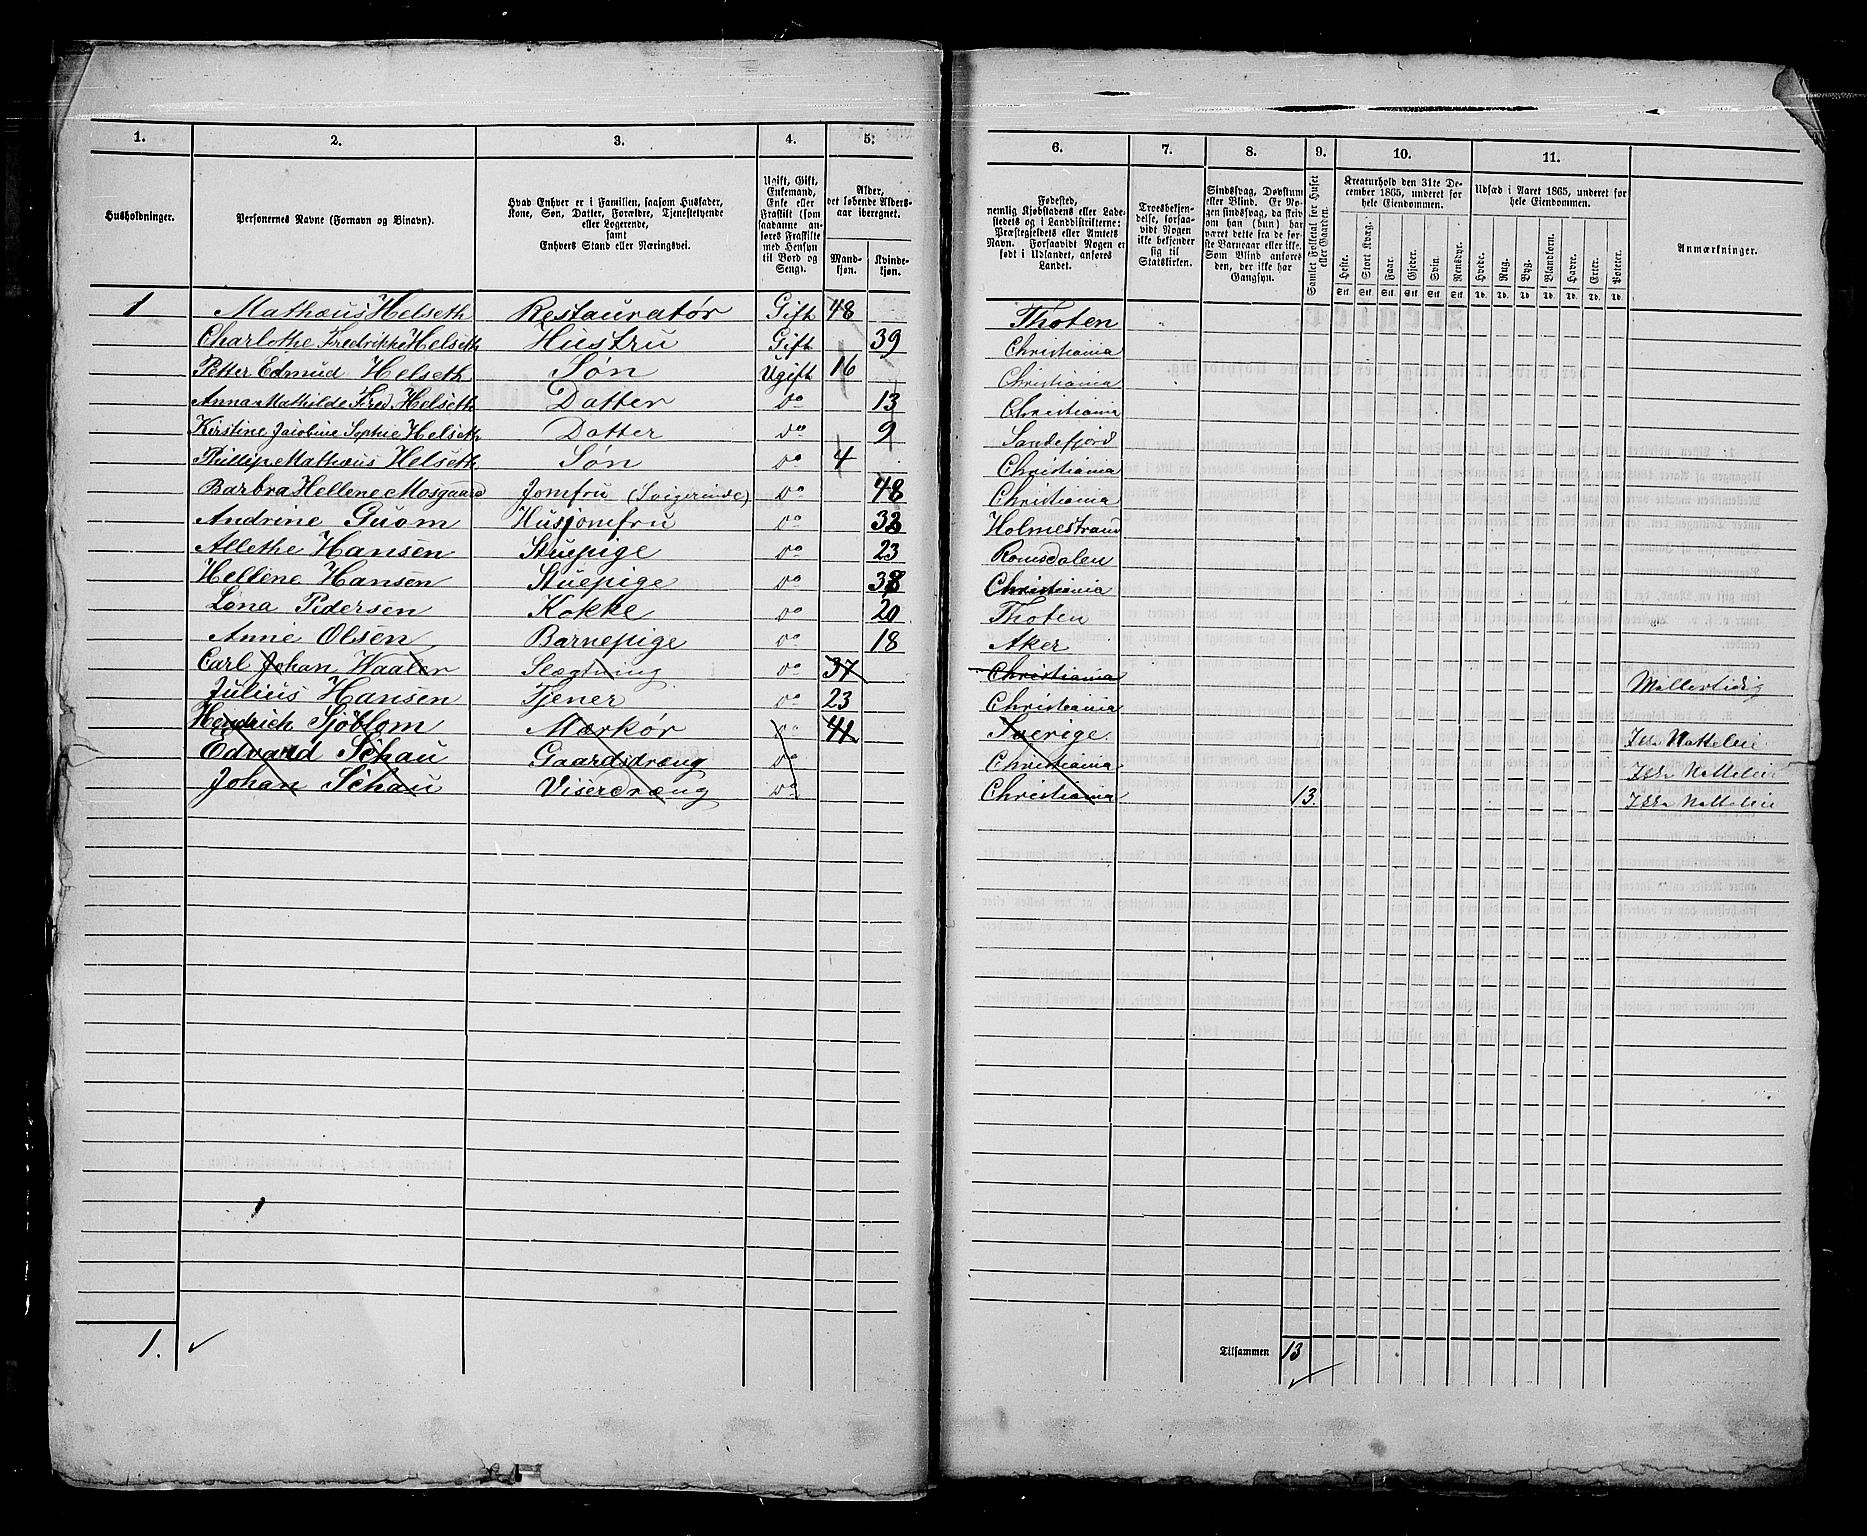 1. 2. 3. 4. 5.
Husholdninger.
Personernes Navne (Fornavn og Binavn).
Hvad Enhver er i Familien, saasom Husfader,
Kone, Søn, Datter, Forældre, Tjenestetyende
eller Logerende,
samt
Enhvers Stand eller Næringsvei.
Ugift, Gift,
Enkemand,
Enke eller
Fraskilt (som
saadanne an-
føres Fraskilte
med Hensyn
til Bord og
Seng).
Alder,
det løbende Alders-
aar iberegnet.
Mand-
kjøn.
Kvinde-
kjøn.
1 Mathæus Helseth Restauratør Gift 48
Charlothe Fredrikke Helseth Hustru Gift 39
Petter Edmud Helseth Søn Ugift 16
Anna Mathilde Fred. Helseth Datter do 13
Kirstine Jacobine Sophie Helseth Datter do 9
Phillip Mathæus Helseth Søn do 4
Barbra Hellene Mosgaard Jomfru (Svigerinde) do 48
Andrine Guom Husjomfru do 32
Allethe Hansen Stuepige do 23
Hellene Hansen Stuepige do 38
Lona Pedersen Kokke do 20
Anne Olsen Barnepige do 18
Carl Johan Waaler Slægtning do 37
Julius Hansen Tjener do 23
Hendrich Sjöblom Markør do 41
Edvard Schau Gaardsdræng do
Johan Schau Viserdræng do
1.
6. 7. 8. 9. 10. 11.
Fødested,
nemlig Kjøbstadens eller Lade-
stedets og i Landdistrikterne:
Præstegjeldets eller Amtets
Navn. Forsaavidt Nogen er
født i Udlandet, anføres
Landet.
Troesbekjen-
delse, forsaa-
vidt Nogen
ikke bekjender
sig til
Statskirken.
Sindssvag, Døvstum
eller Blind. Er No-
gen sindssvag, da skriv
om han (hun) har
været dette fra de før-
ste Barneaar eller ikke.
Som Blind anføres
den, der ikke har
Gangsyn.
Samlet Folketal for Huset
eller Gaarden.
Kreaturhold den 31te De-
cember 1865, underet for
hele Eiendommen.
Heste. Stort Kvæg. Faar. Gjeder. Svin. Rensdyr.
Stk. Stk. Stk. Stk. Stk. Stk.
Udsæd i Aaret 1865, underet for
hele Eiendommen.
Hvede. Rug. Byg. Blandkorn. Havre. Erter. Poteter.
Td. Td. Td. Td. Td. Td. Td.
Anmærkninger.
Thoten
Christiania
Christiania
Christiania
Sandefjord
Christiania
Christiania
Holmestrand
Romsdalen
Christiania
Thoten
Aker
Christiania Midlertidig
Christiania
Sverige
Christiania
Christiania 13.
Tilsammen 13